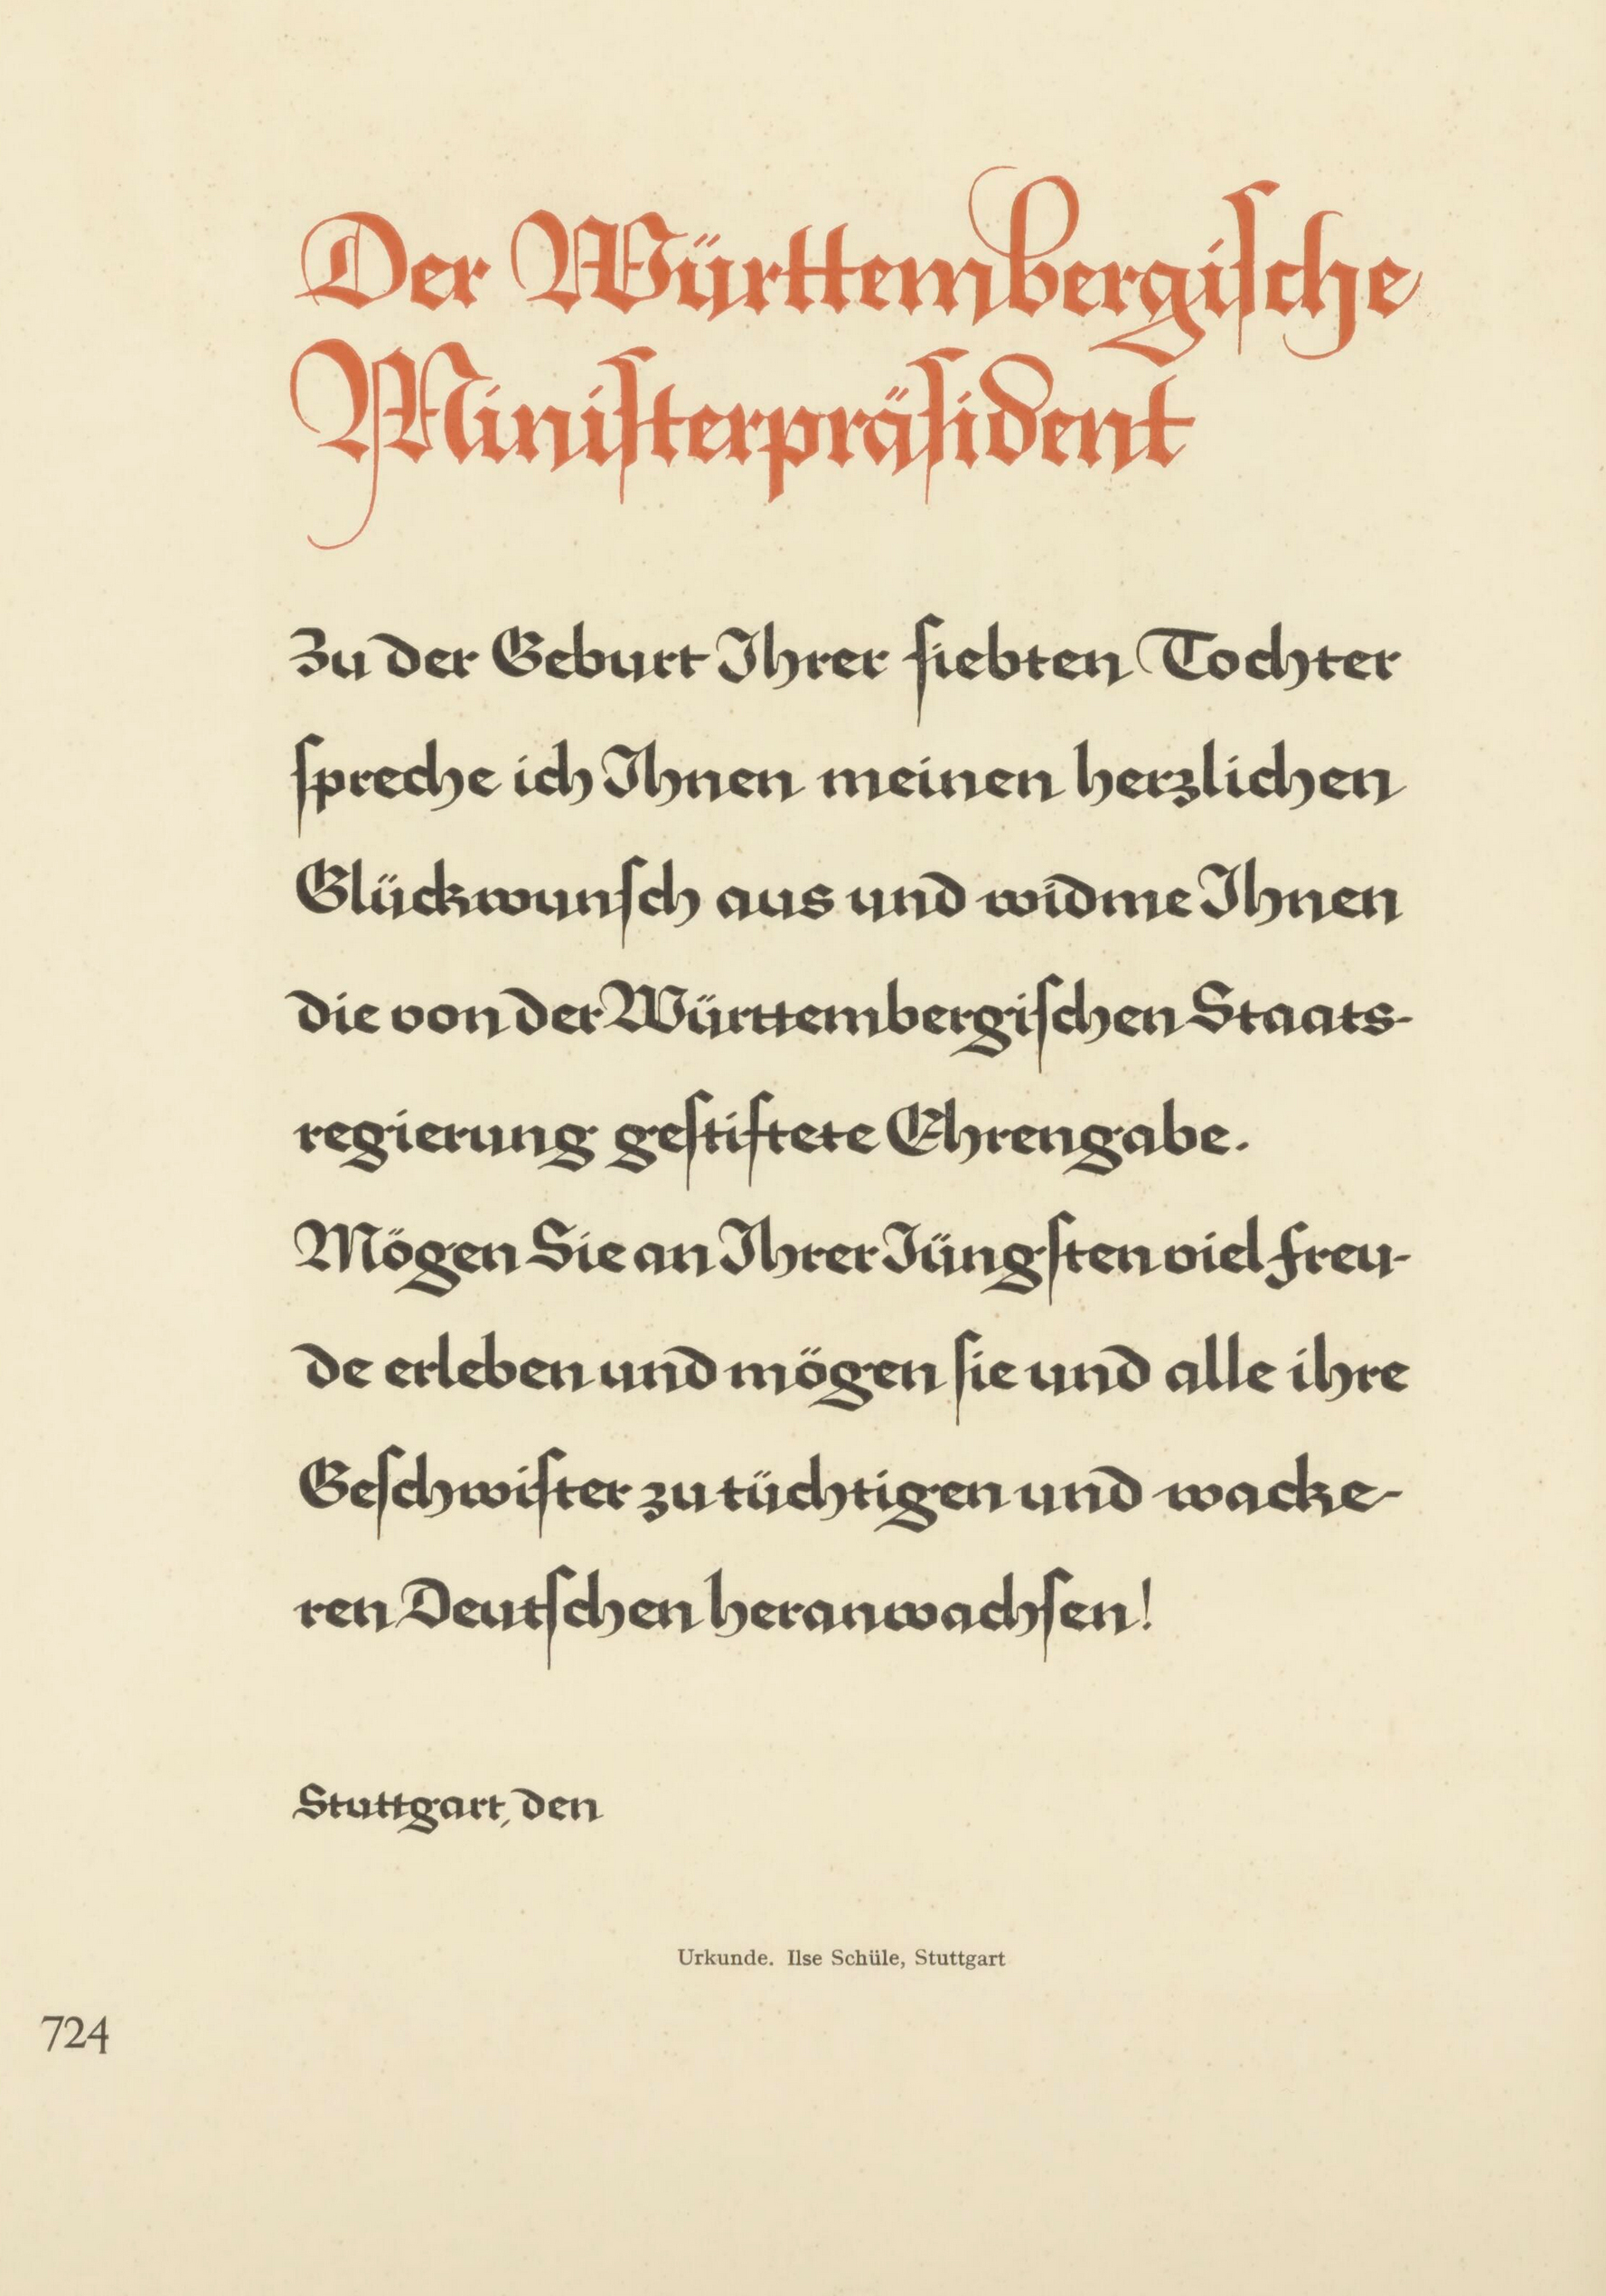 Der Württembergische
Ministerpräsident
Zu der Geburt Ihrer siebten Tochter
spreche ich Ihnen meinen herzlichen
Glückwunsch aus und widme Ihnen
die von der Württembergischen Staats-
regierung gestiftete Ehrengabe.
Mögen Sie an Ihrer Jüngsten viel Freu-
de erleben und mögen sie und alle ihre
Geschwister zu tüchtigen und wacke-
ren Deutschen heranwachsen!
Stuttgart, den
Urkunde. Ilse Schüle, Stuttgart
724